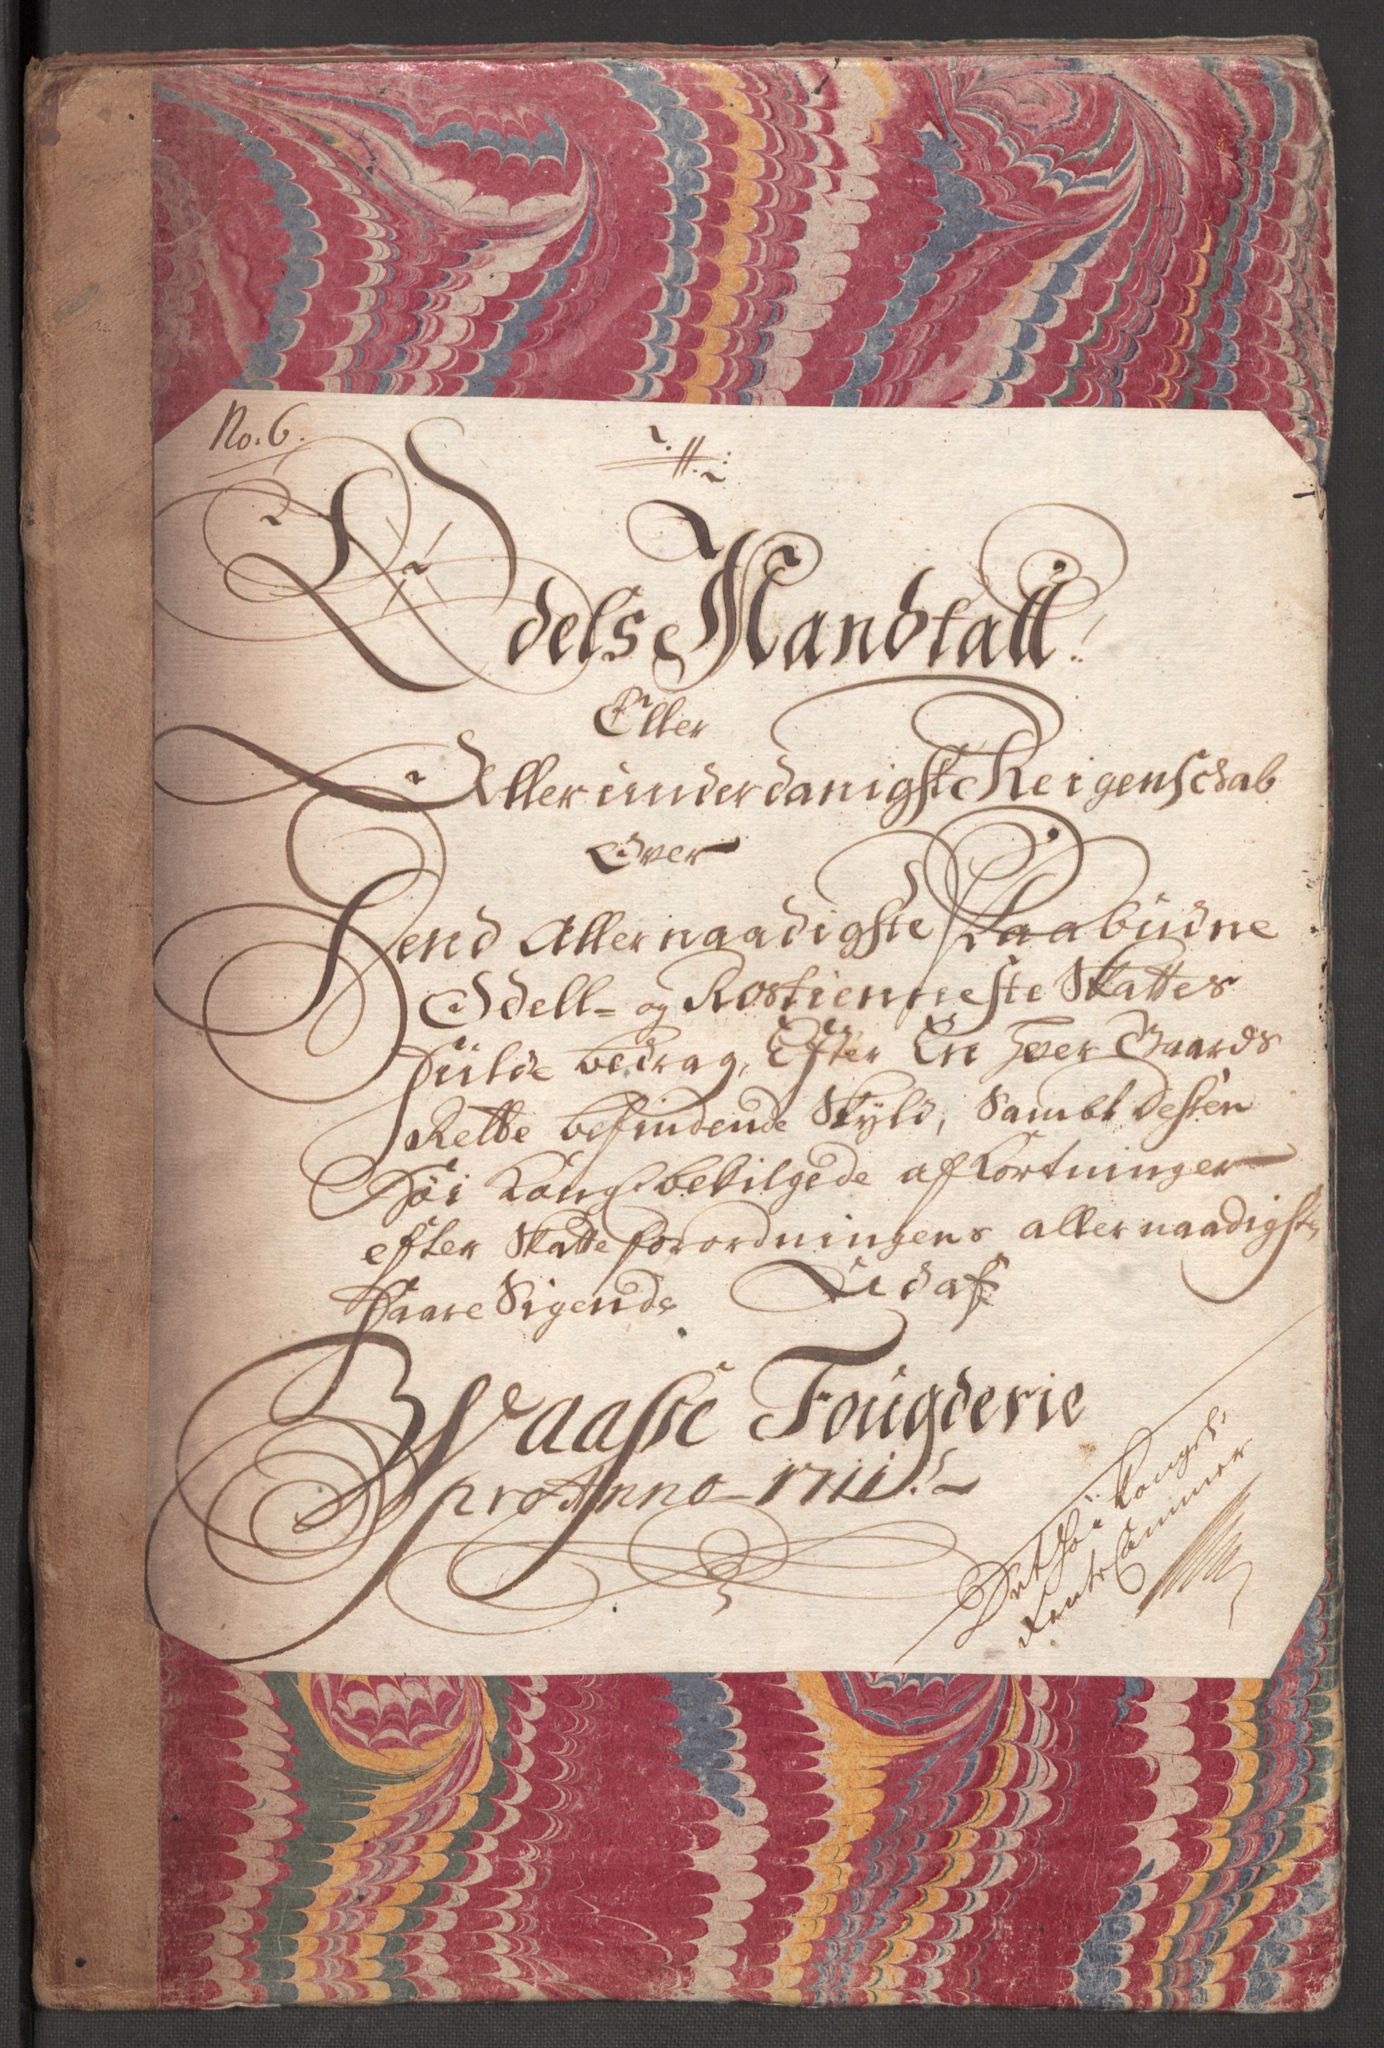 No. 6.
Odels Mandtall
Eller
Allerunderdanigste Reigenschab
Over
Dend Allernaadigste Paabudne
Odell- og Rostienneste Skattes
fulde bedrag, Efter En hver Gaards
Rette befindende Skyld, Sambt dessen
höi Kongl. bevilgede afkortninger
efter Skatteforordningens allernaadigste
Paasigende Udaf
Waasse Fougderie
pro Anno 1711.
Det höi Kongel.
Rente Cammer